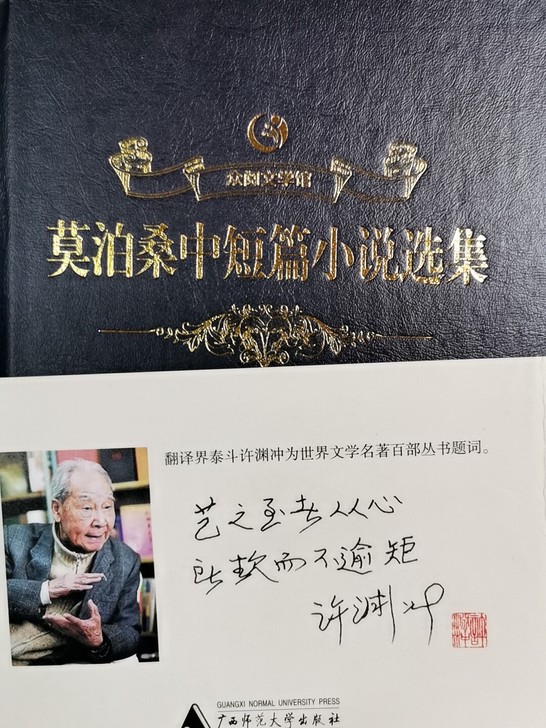 众阅文学馆
莫泊桑中短篇小说选集
翻译界泰斗许渊冲为世界文学名著百部丛书题词。
艺之至者从心
所欲而不逾矩
许渊冲
GUANGXI NORMAL UNIVERSITY PRESS
广西师范大学出版社